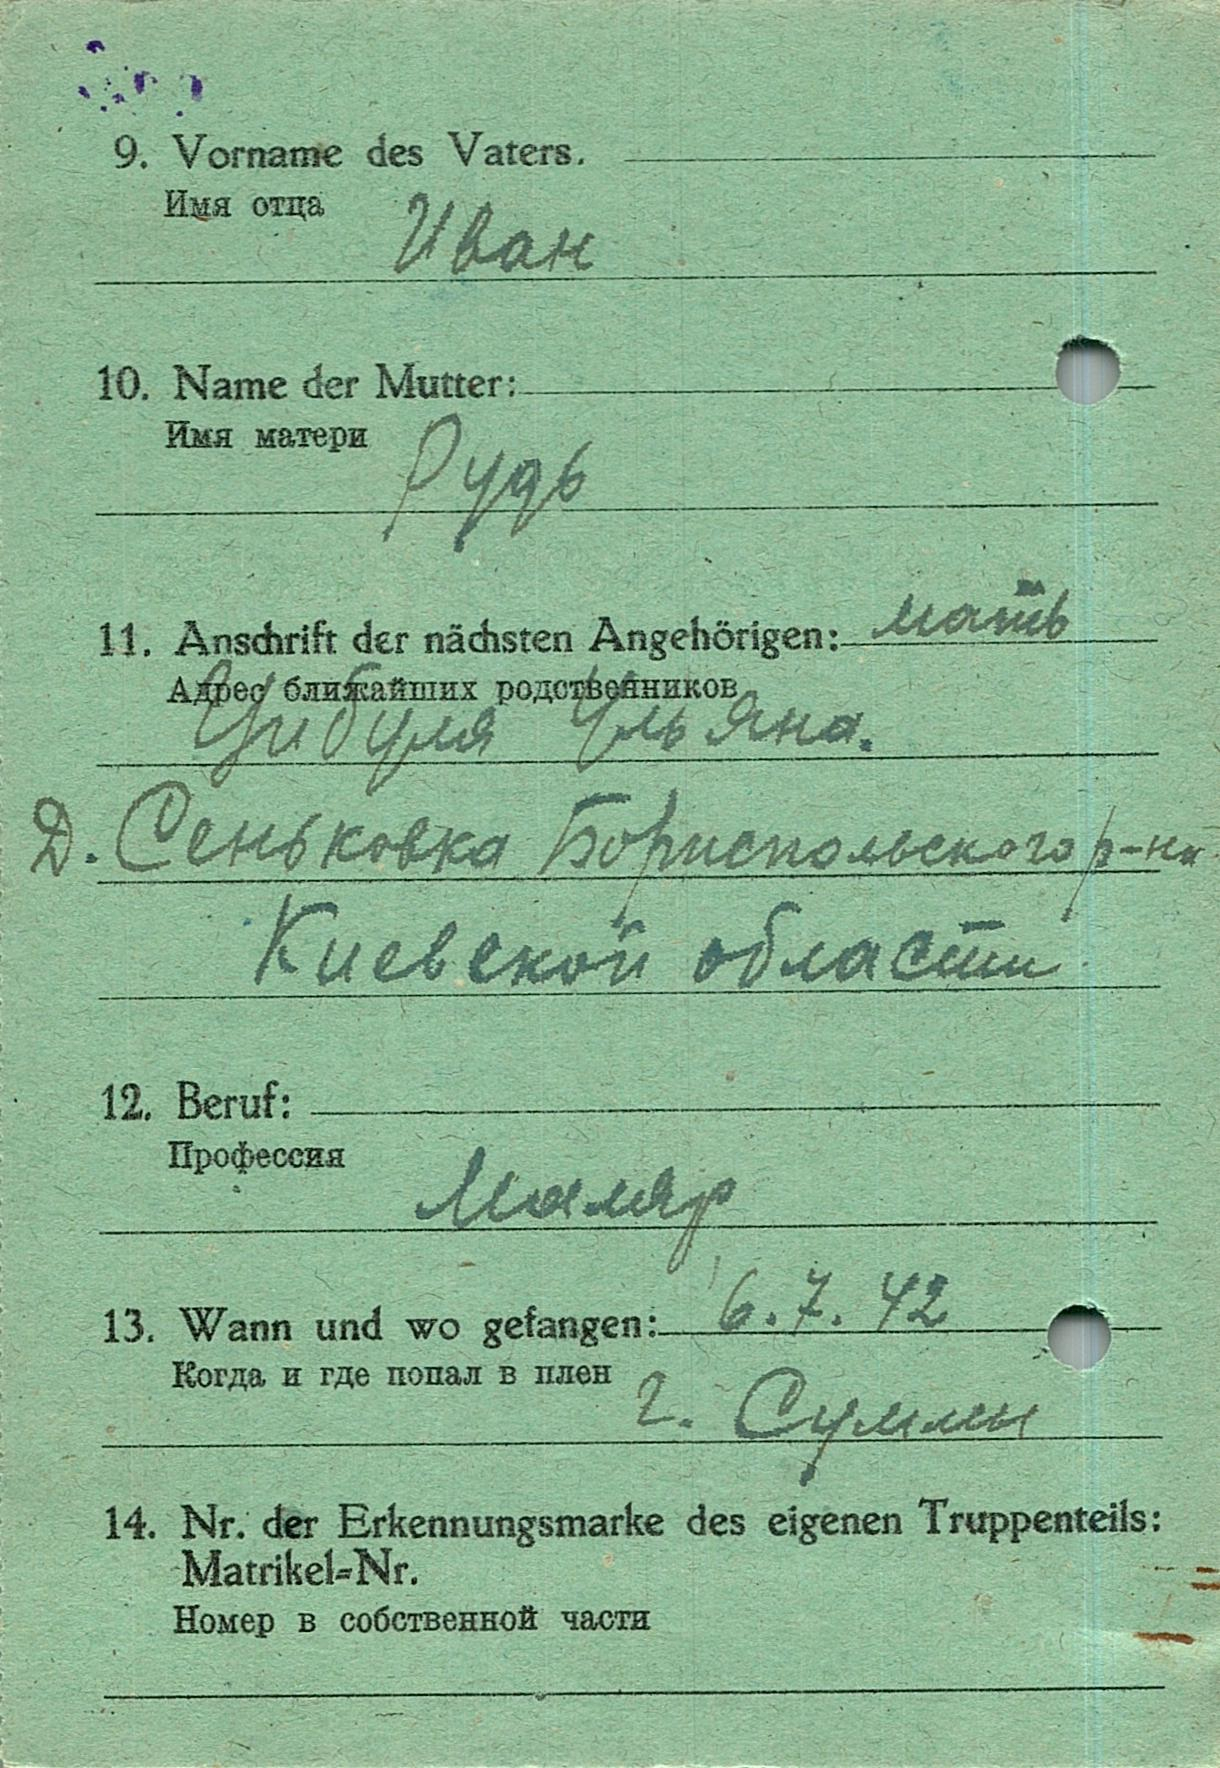 9. Vorname des Vaters.
Имя отца
Иван
10. Name der Mutter:
Имя матери
Рудь
11. Anschrift der nächsten Angehörigen: мать
Адрес ближайших родственников
Цибуля Ульяна.
Д. Сеньковка Бориспольского р-на
Киевской области
12. Beruf:
Профессия
Маляр
13. Wann und wo gefangen: 6.7.42
Когда и где попал в плен
г. Суммы
14. Nr. der Erkennungsmarke des eigenen Truppenteils:
Matrikel-Nr.
Номер в собственной части